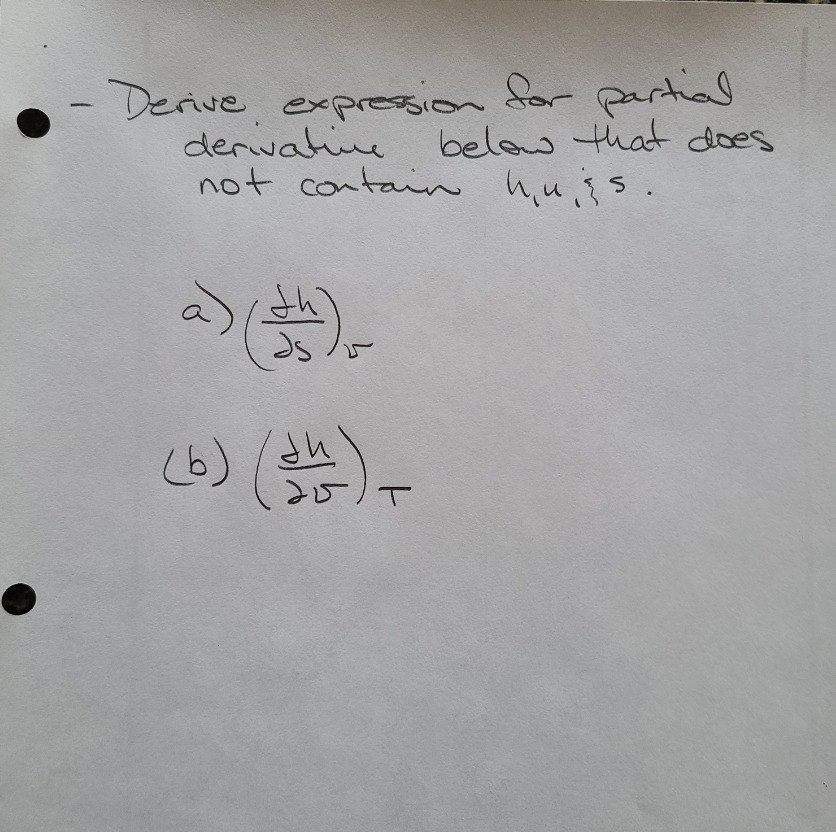 - Derive expression for partial
derivative below that does
not contain h, u, & s.
a) (∂h/∂s)v
(b) (∂h/∂v)T